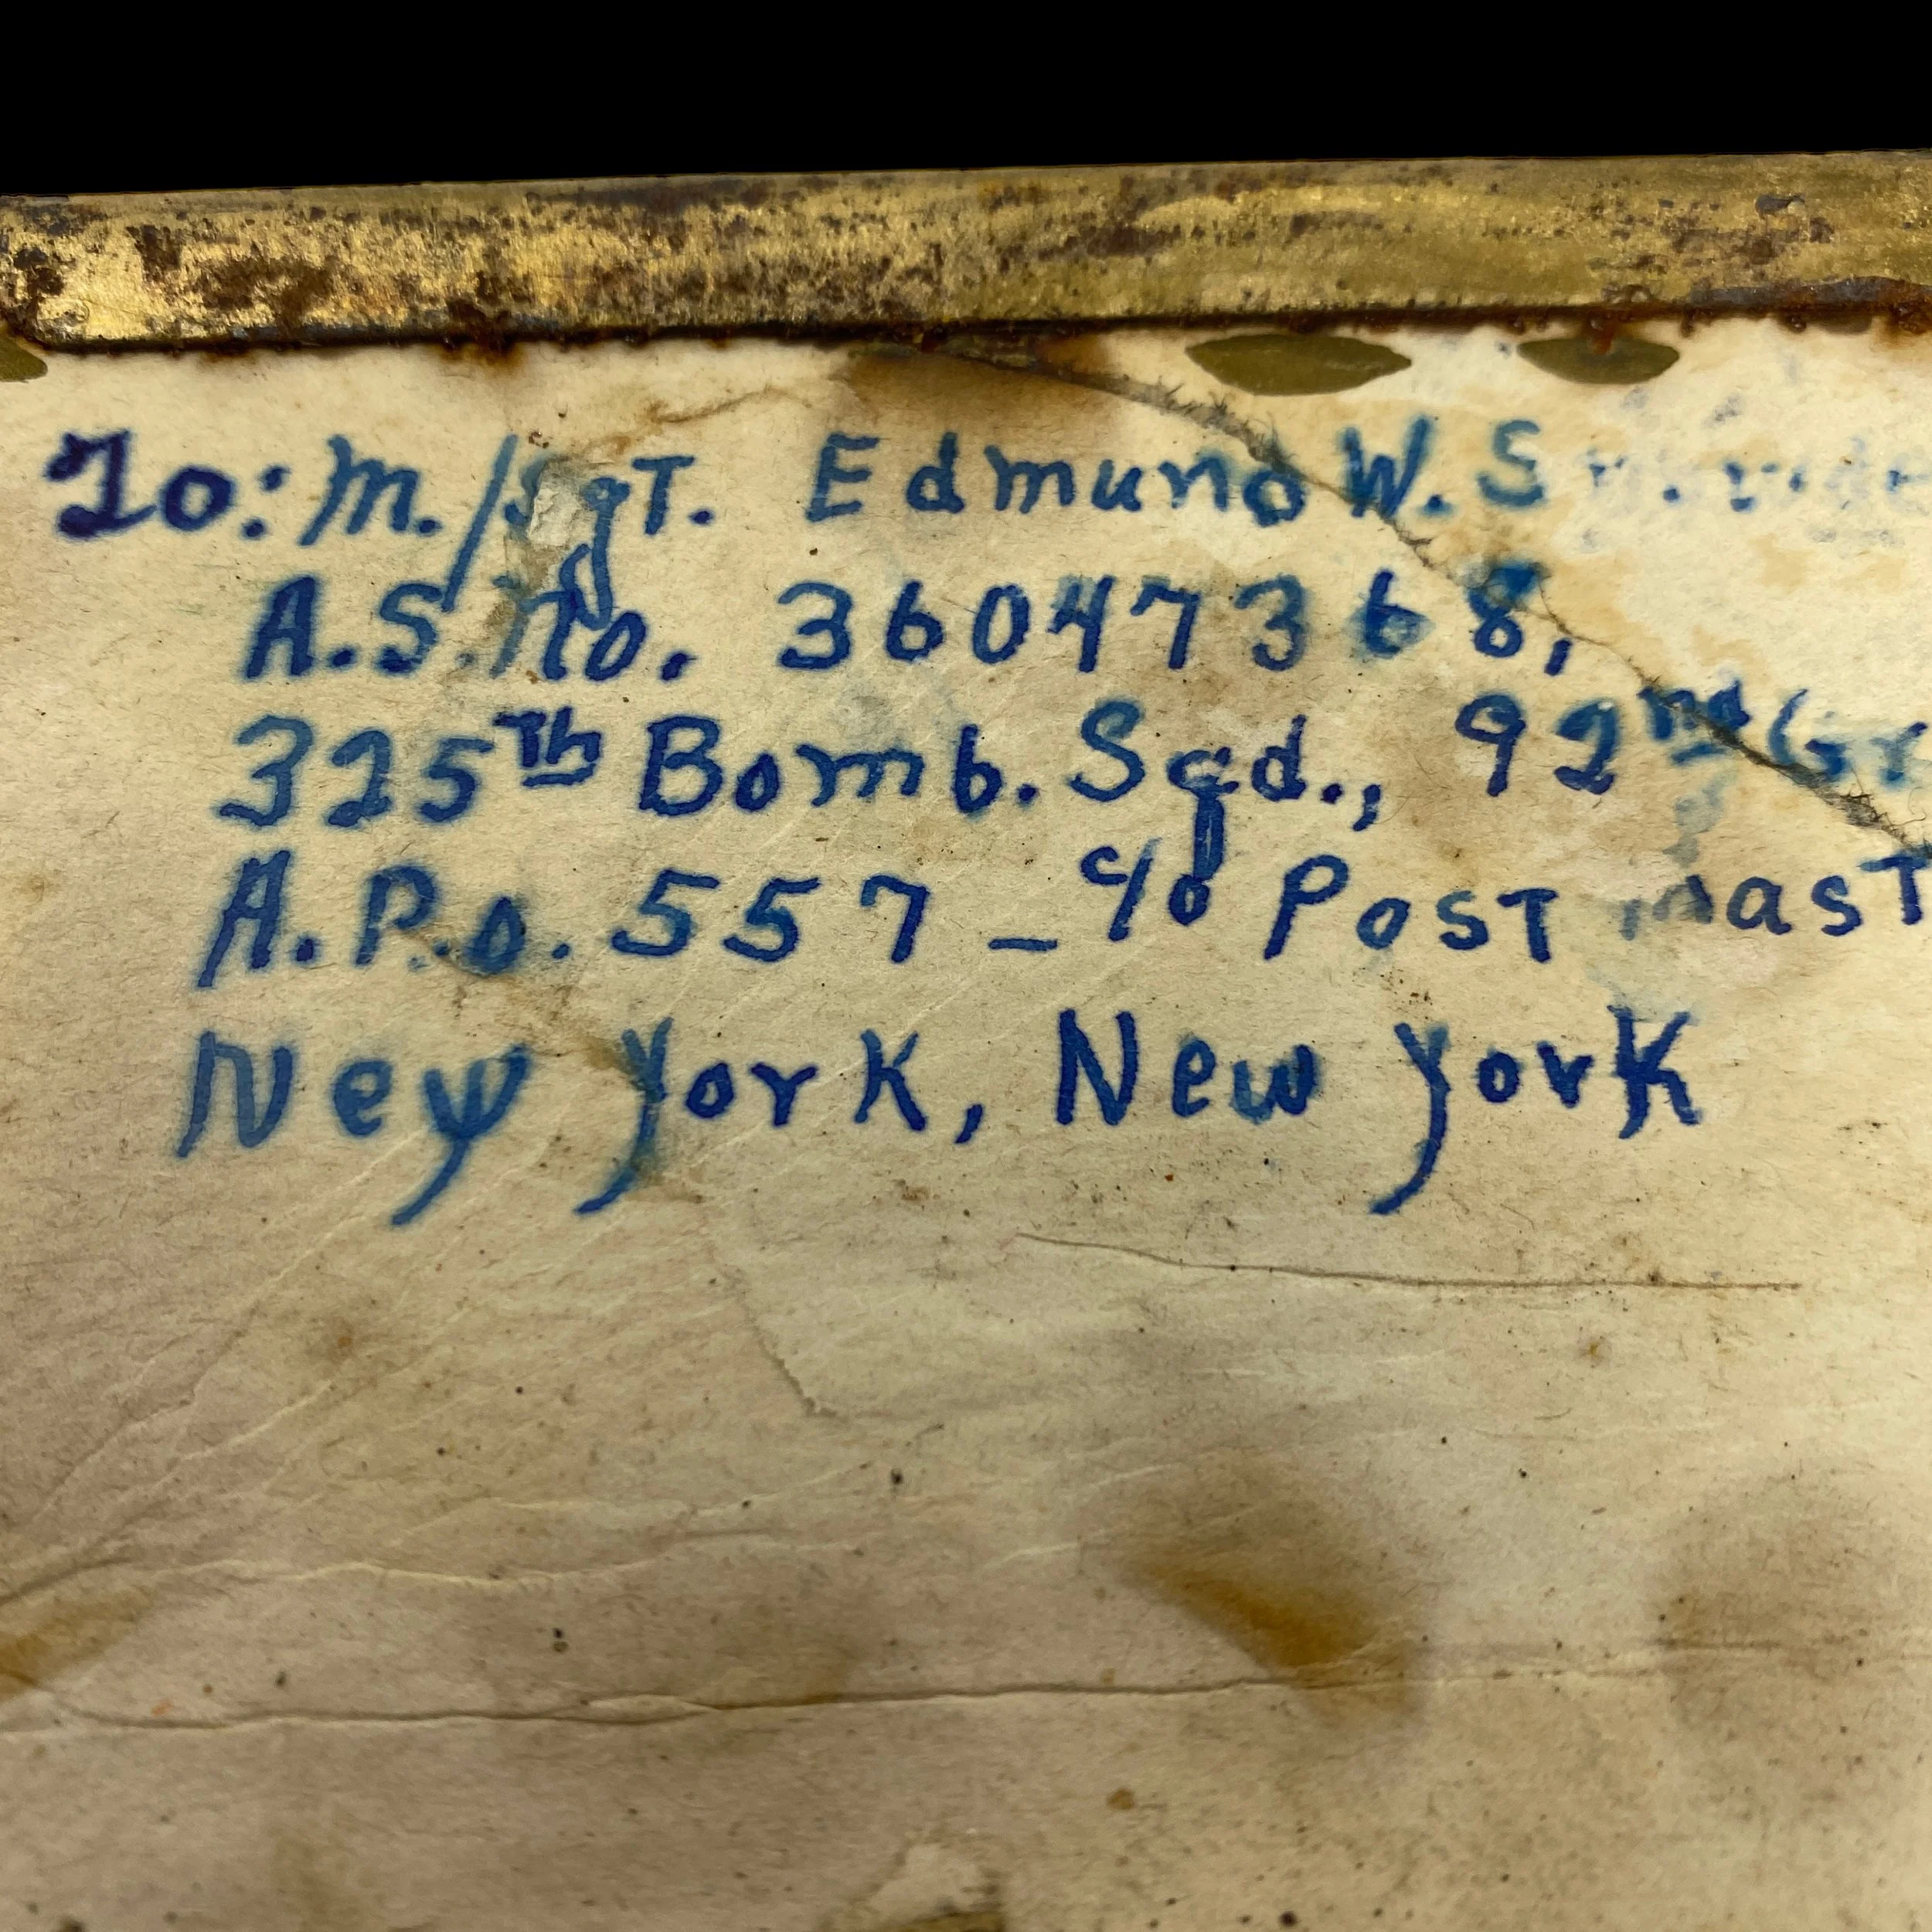 To: M./SgT. Edmund W.
A.S.no. 36047368,
325Th Bomb. Sqd., 92nd Gr
A.P.o. 557 - c/o PosT masT
New York, New York